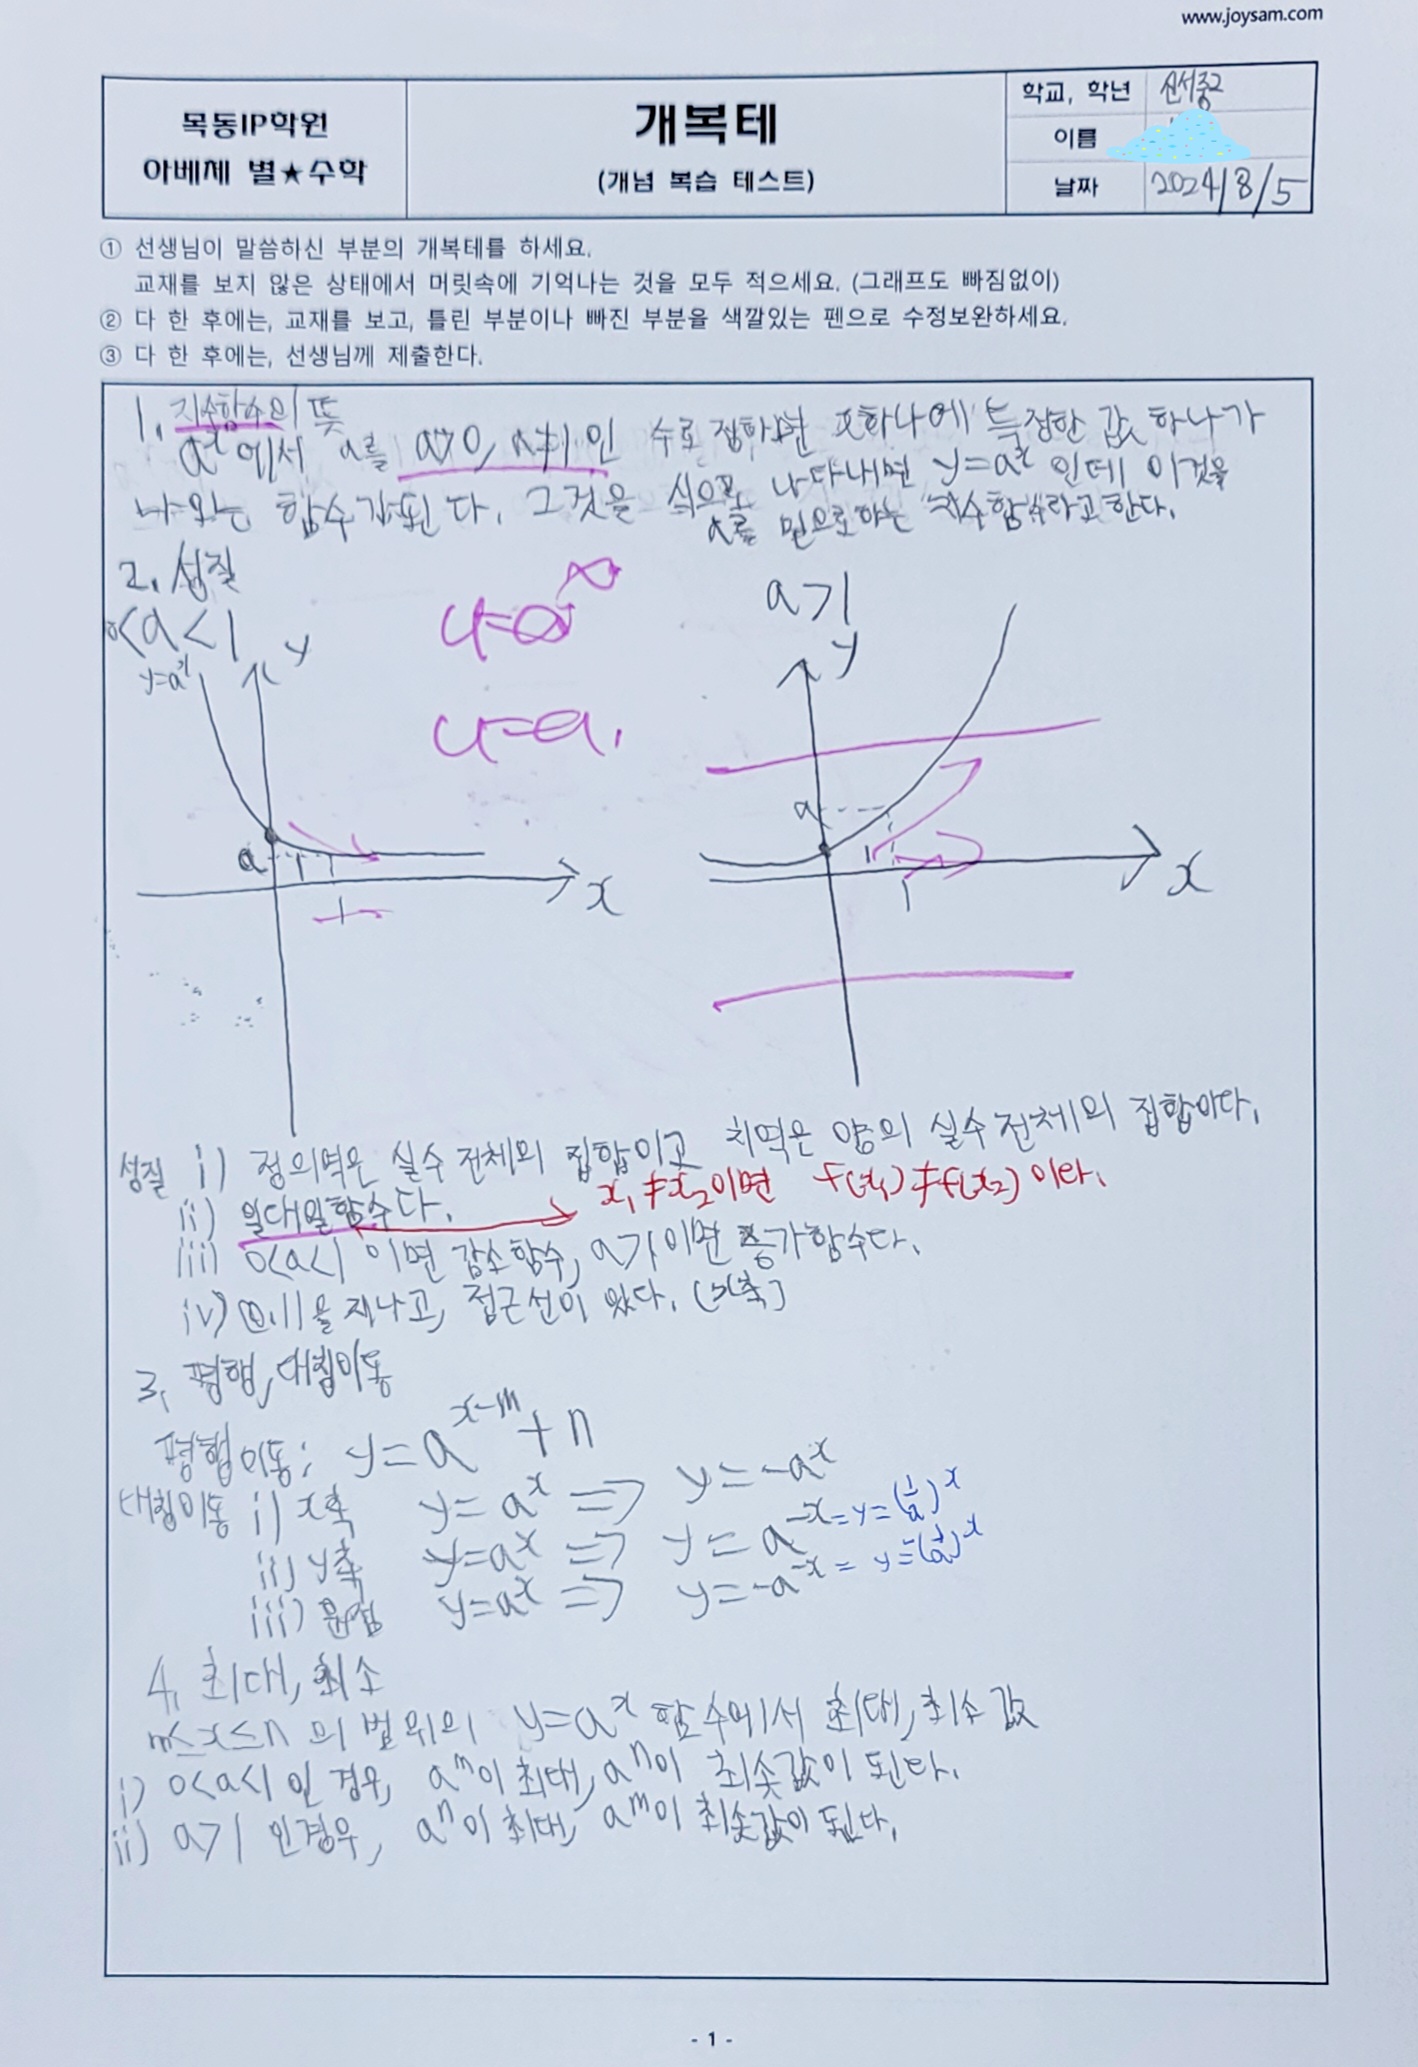 www.joysam.com
목동IP학원
아베체 별★수학
개복테
(개념 복습 테스트)
학교, 학년 신서중2
이름
날짜 2024/8/5
① 선생님이 말씀하신 부분의 개복테를 하세요.
교재를 보지 않은 상태에서 머릿속에 기억나는 것을 모두 적으세요. (그래프도 빠짐없이)
② 다 한 후에는, 교재를 보고, 틀린 부분이나 빠진 부분을 색깔있는 펜으로 수정보완하세요.
③ 다 한 후에는, 선생님께 제출한다.
1. 지수함수의 뜻
aˣ에서 a를 a>0, a≠1인 수로 정하면 x하나에 특정한 값 하나가
나오는 함수가 된다. 그것을 식으로 나타내면 y=aˣ 인데 이것을
a를 밑으로 하는 지수함수라고 한다.
2. 성질
0<a<1
a>1
y=aˣ
y
y
a
1
x
a
1
x
성질 i) 정의역은 실수 전체의 집합이고 치역은 양의 실수 전체의 집합이다.
ii) 일대일함수다. x₁≠x₂이면 f(x₁)≠f(x₂)이다.
iii) 0<a<1 이면 감소함수, a>1이면 증가함수다.
iv) (0,1)을 지나고, 점근선이 있다. (x축)
3. 평행, 대칭이동
평행이동: y=aˣ⁻ᵐ+n
대칭이동 i) x축 y=aˣ ⇒ y=-aˣ
ii) y축 y=aˣ ⇒ y=a⁻ˣ = y=(1/a)ˣ
iii) 원점 y=aˣ ⇒ y=-a⁻ˣ = y=-(1/a)ˣ
4. 최대, 최소
m≤x≤n 의 범위의 y=aˣ 함수에서 최대, 최소 값
i) 0<a<1 인 경우, aᵐ이 최대, aⁿ이 최솟값이 된다.
ii) a>1 인경우, aⁿ이 최대, aᵐ이 최솟값이 된다.
- 1 -